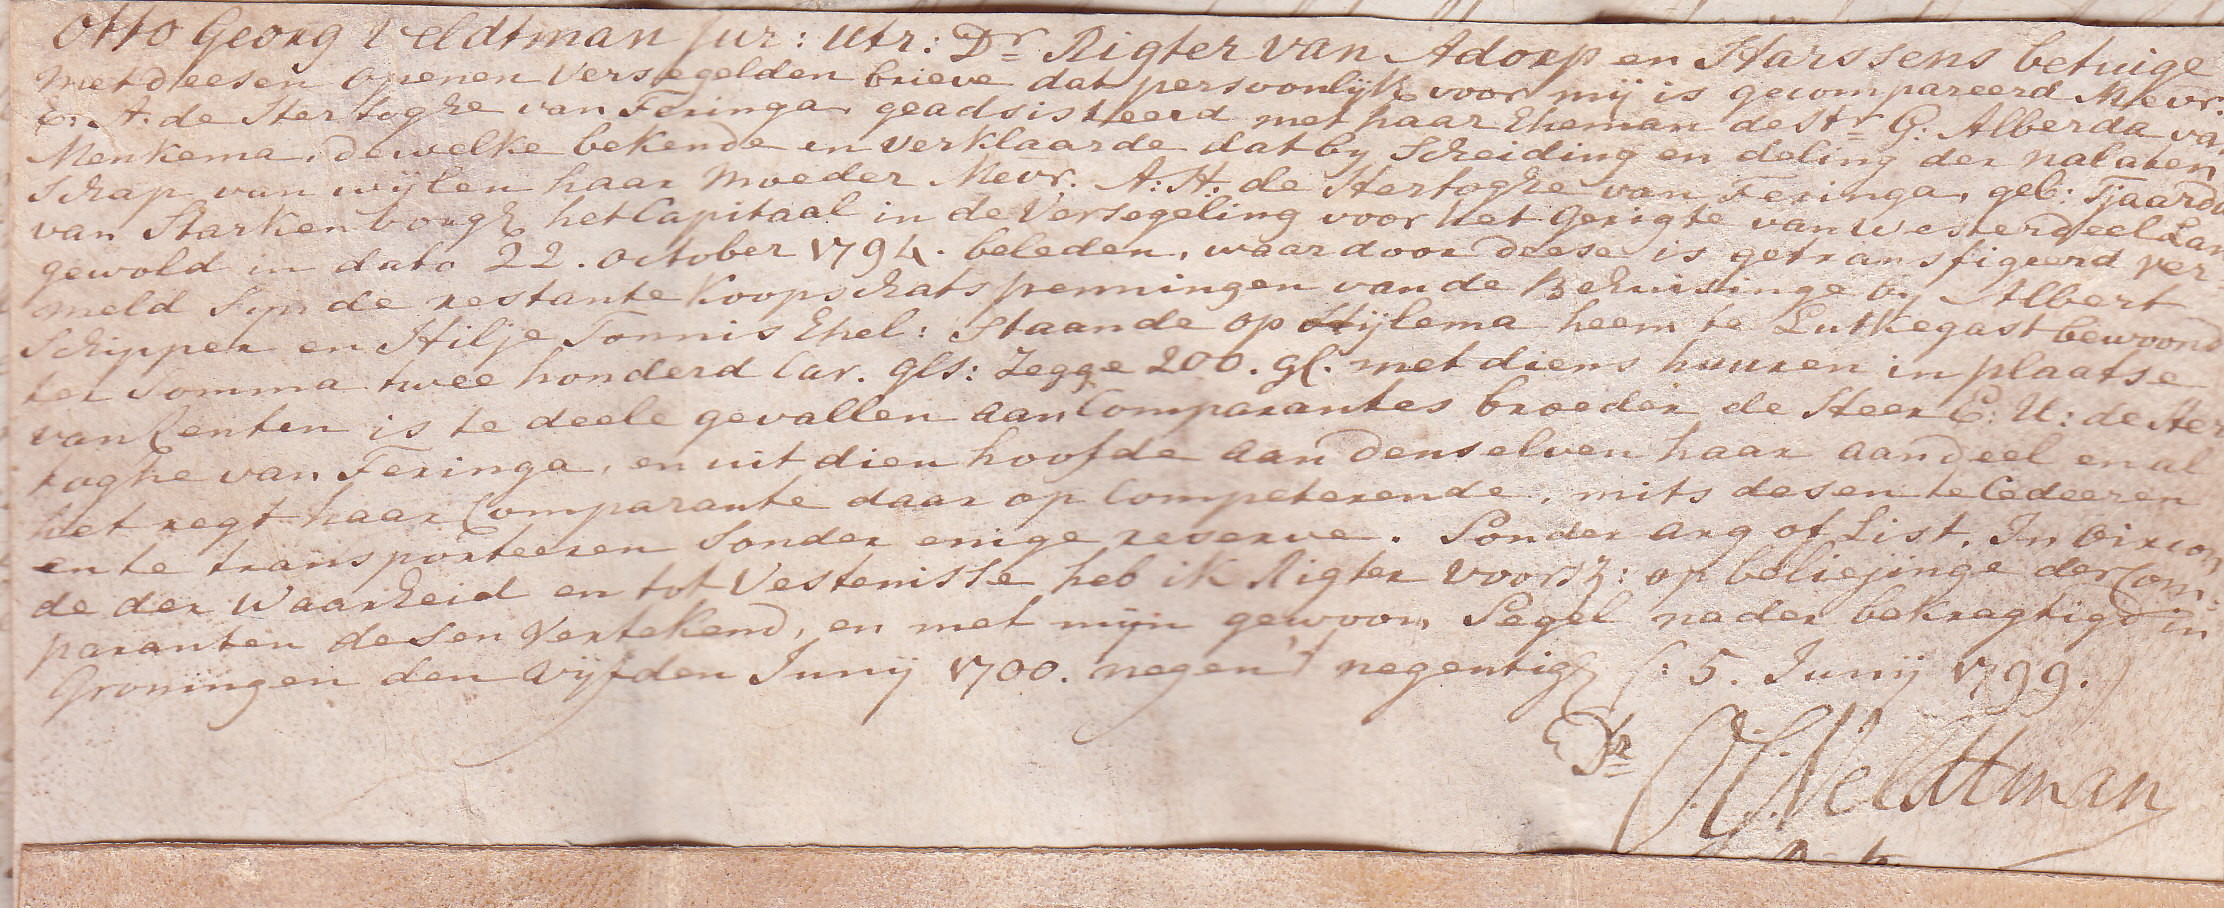 Otto Georg Veldtman Jur: Utr: Dr Rigter van Adorp en Harssens betuige
met deesen openen versegelden brieve dat persoonlijk voor mij is gecompareerd Mevr.
E. A. de Hertoghe van Feringa geadsisteerd met haar Eheman de Hr G. Alberda van
Menkema, dewelke bekende en verklaarde dat by Scheiding en deling der nalaten
schap van wijlen haar Moeder Mevr. A: H: de Hertoghe van Feringa, geb: Tjaarda
van Starkenborgh het Capitaal in de Versegeling voor het Gerigte van Westerdeel Lan
gewold in dato 22. October 1794. beleden, waardoor deese is getransfigeerd ver-
meld Sijn de restante Koopschats penningen van de Behuisinge by Albert
Schipper en Hilje Tonnis Ehel: staande op Hijlema heem te Lutkegast bewoond
ter Somma twee honderd Car. gls: Zegge 200. gl. met diens huuren in plaatse
van Renten is te deele gevallen aan Comparantes broeder de Heer E: U: de Her
toghe van Feringa, en uit dien hoofde aan denselven haar aandeel en al
het regt haar Comparante daar op Competerende, mits desen te Cedeeren
en te transporteeren Sonder enige reserve. Sonder arg of List. In oircon
de der Waarheid en tot Vestenisse heb ik Rigter voorsz: op beliejinge der Com-
paranten desen Vertekend, en met mijn gewoon Segel nader bekragtigd in
Groningen den Vijfden Junij 1700. negen't negentig (: 5. Junij 1799.)
Dr O G Veldtman